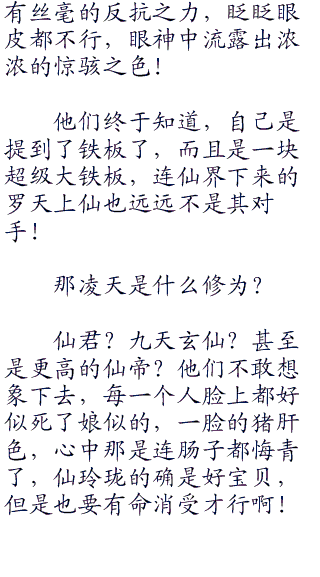 有丝毫的反抗之力，眨眨眼
皮都不行，眼神中流露出浓
浓的惊骇之色！
他们终于知道，自己是
提到了铁板了，而且是一块
超级大铁板，连仙界下来的
罗天上仙也远远不是其对
手！
那凌天是什么修为？
仙君？九天玄仙？甚至
是更高的仙帝？他们不敢想
象下去，每一个人脸上都好
似死了娘似的，一脸的猪肝
色，心中那是连肠子都悔青
了，仙玲珑的确是好宝贝，
但是也要有命消受才行啊！